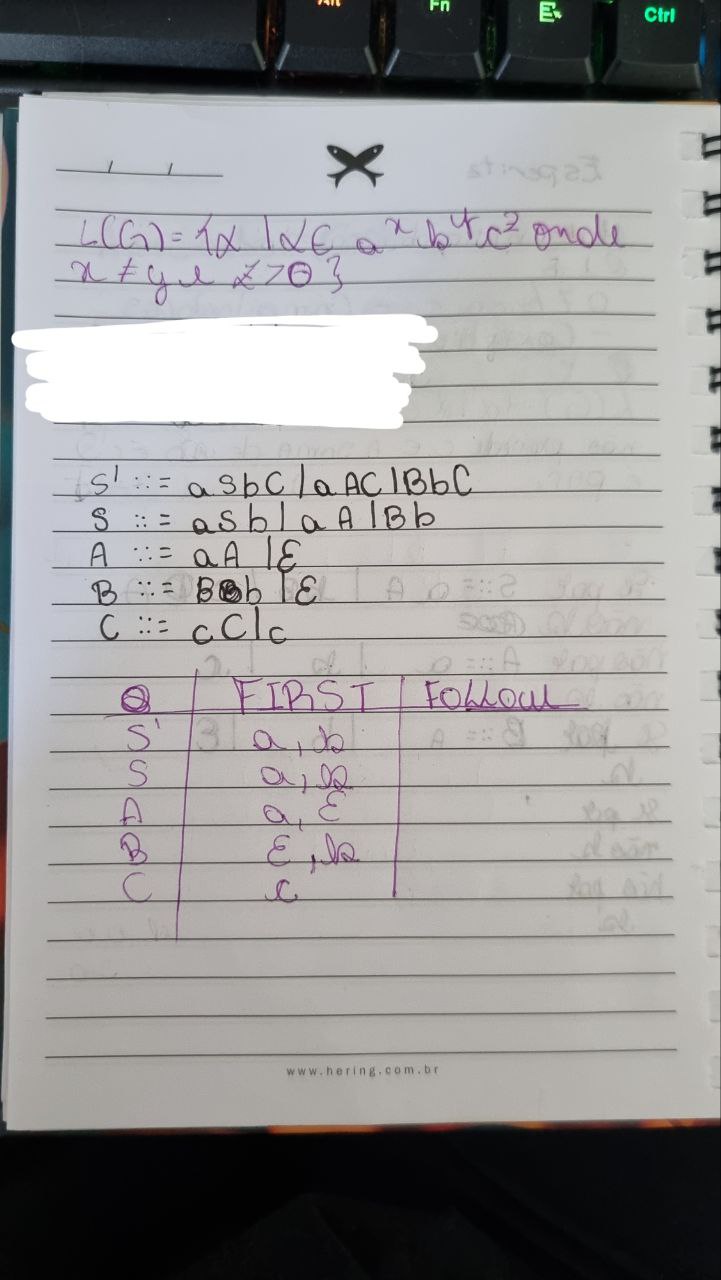 Alt Fn E Ctrl
L(G) = {α | α ∈ a^x b^y c^z onde
x ≠ y e z > 0}
S' ::= aSbC | aAC | BbC
S ::= aSb | aA | Bb
A ::= aA | ε
B ::= Bb | ε
C ::= cC | c
FIRST FOLLOW
S' a, b
S a, b
A a, ε
B ε, b
C c
www.hering.com.br